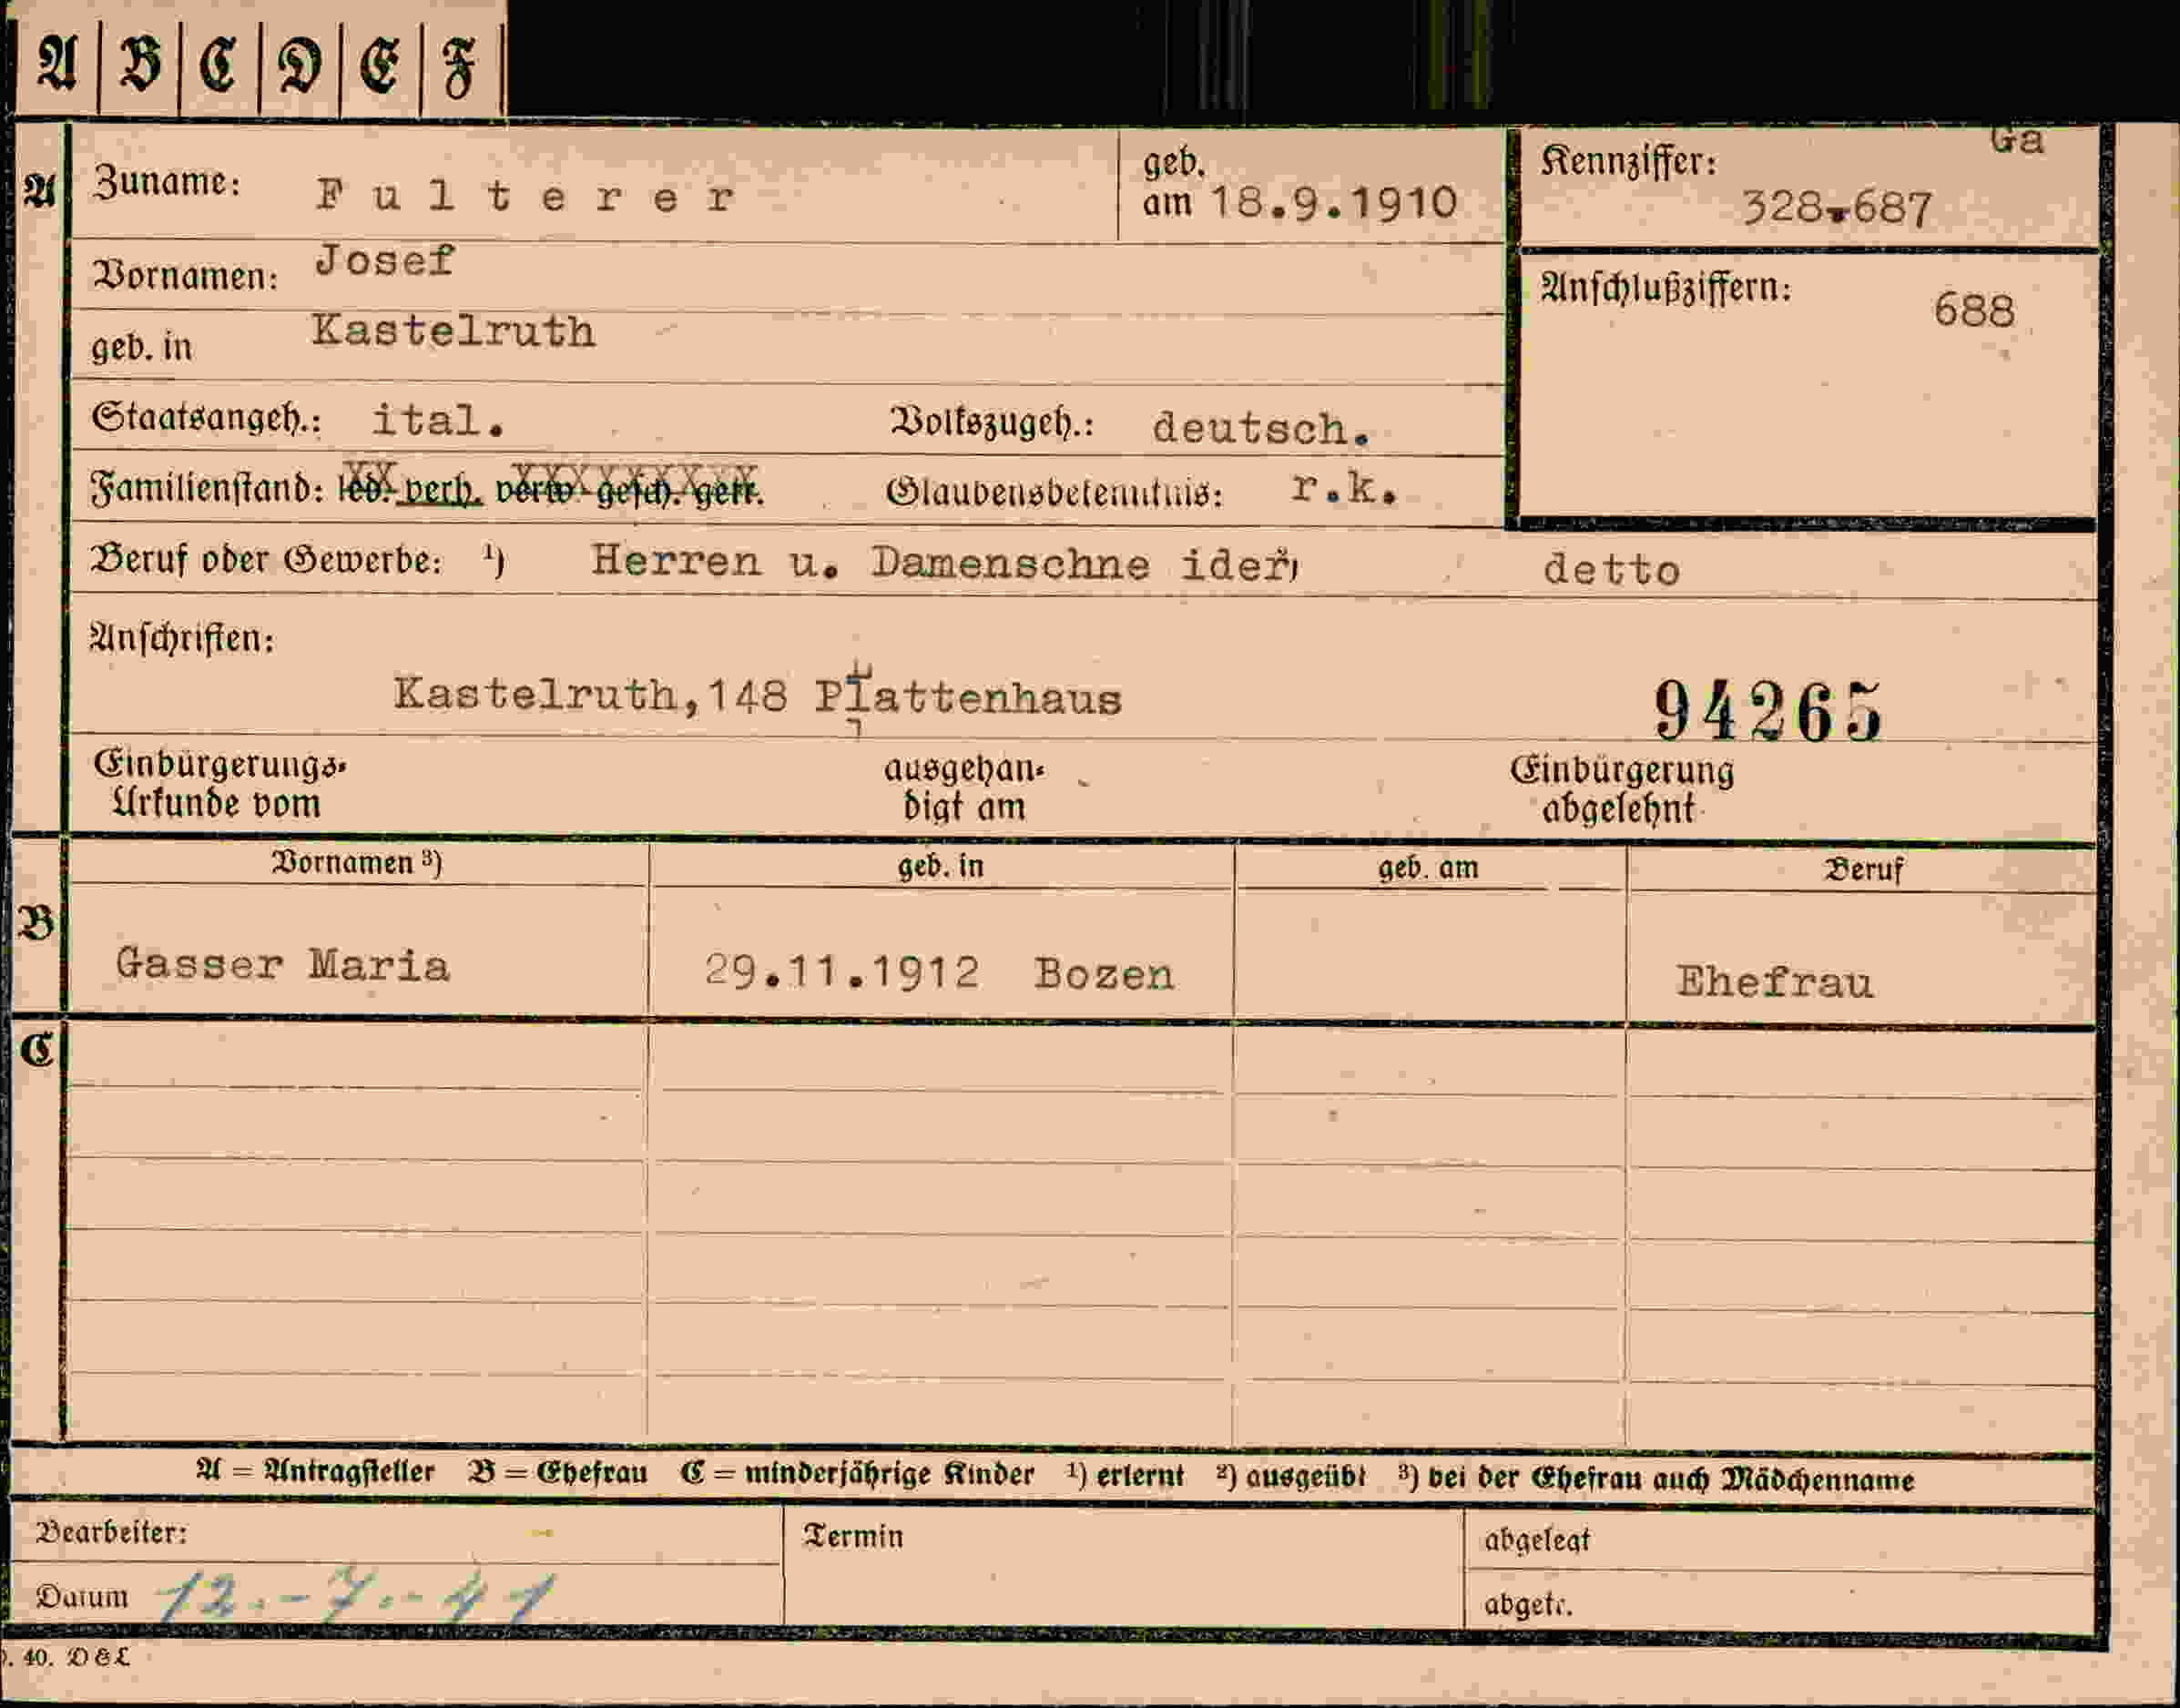 A B C D E F
Ga
A Zuname: Fulterer geb. am 18.9.1910 Kennziffer: 328-687
Vornamen: Josef Anschlußziffern: 688
geb. in Kastelruth
Staatsangeh.: ital. Volkszugeh.: deutsch.
Familienstand: led. verh. verw. gesch. getr. Glaubensbekenntnis: r.k.
Beruf oder Gewerbe: ¹) Herren u. Damenschne ider detto
Anschriften:
Kastelruth, 148 Plattenhaus 94265
Einbürgerungs- ausgehän- Einbürgerung
Urkunde vom digt am abgelehnt
Vornamen ³) geb. in geb. am Beruf
B Gasser Maria 29.11.1912 Bozen Ehefrau
C
A = Antragsteller B = Ehefrau C = minderjährige Kinder ¹) erlernt ²) ausgeübt ³) bei der Ehefrau auch Mädchenname
Bearbeiter: Termin abgelegt
Datum 12.-7.-41 abgetr.
. 40. D & L